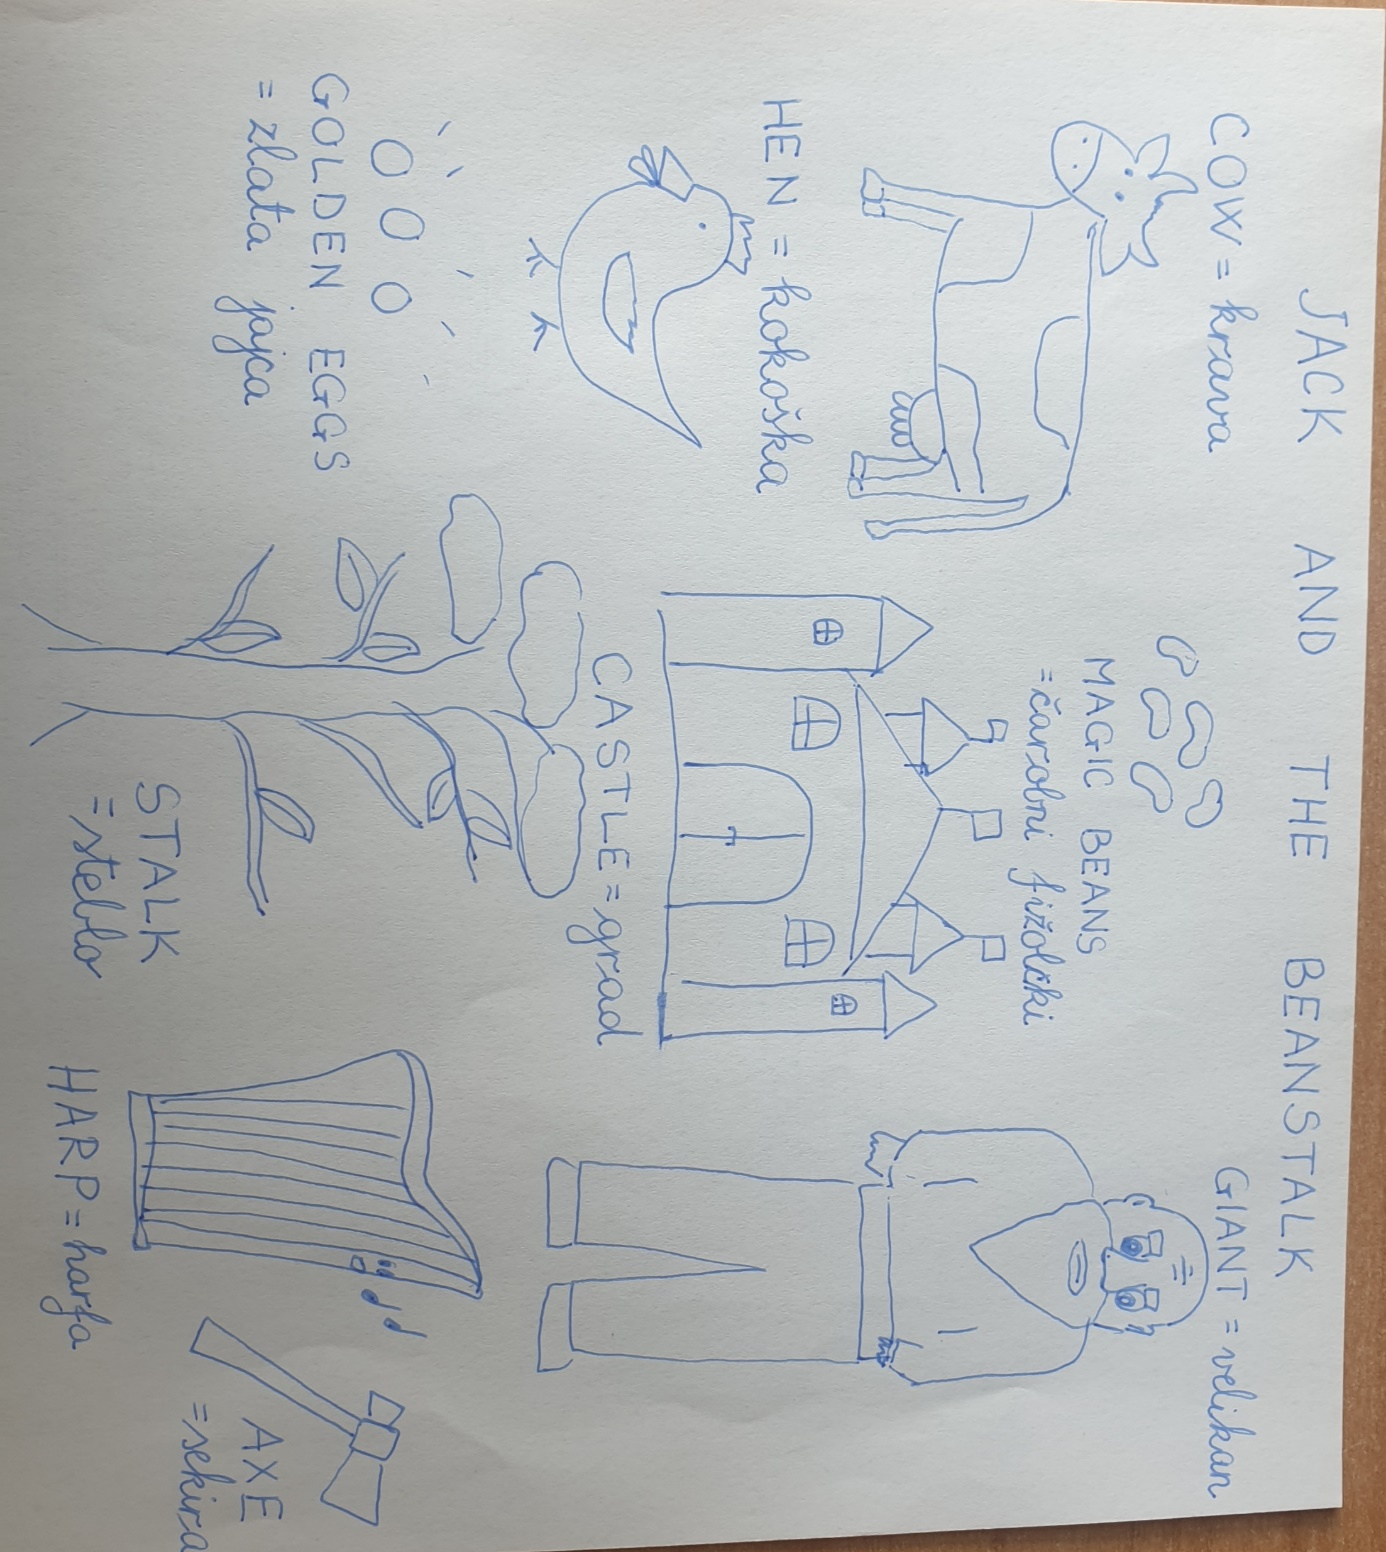 JACK AND THE BEANSTALK
COW = krava
MAGIC BEANS
= čarobni fižolčki
GIANT = velikan
HEN = kokoška
CASTLE = grad
GOLDEN EGGS
= zlata jajca
STALK
= steblo
HARP = harfa
AXE
= sekira